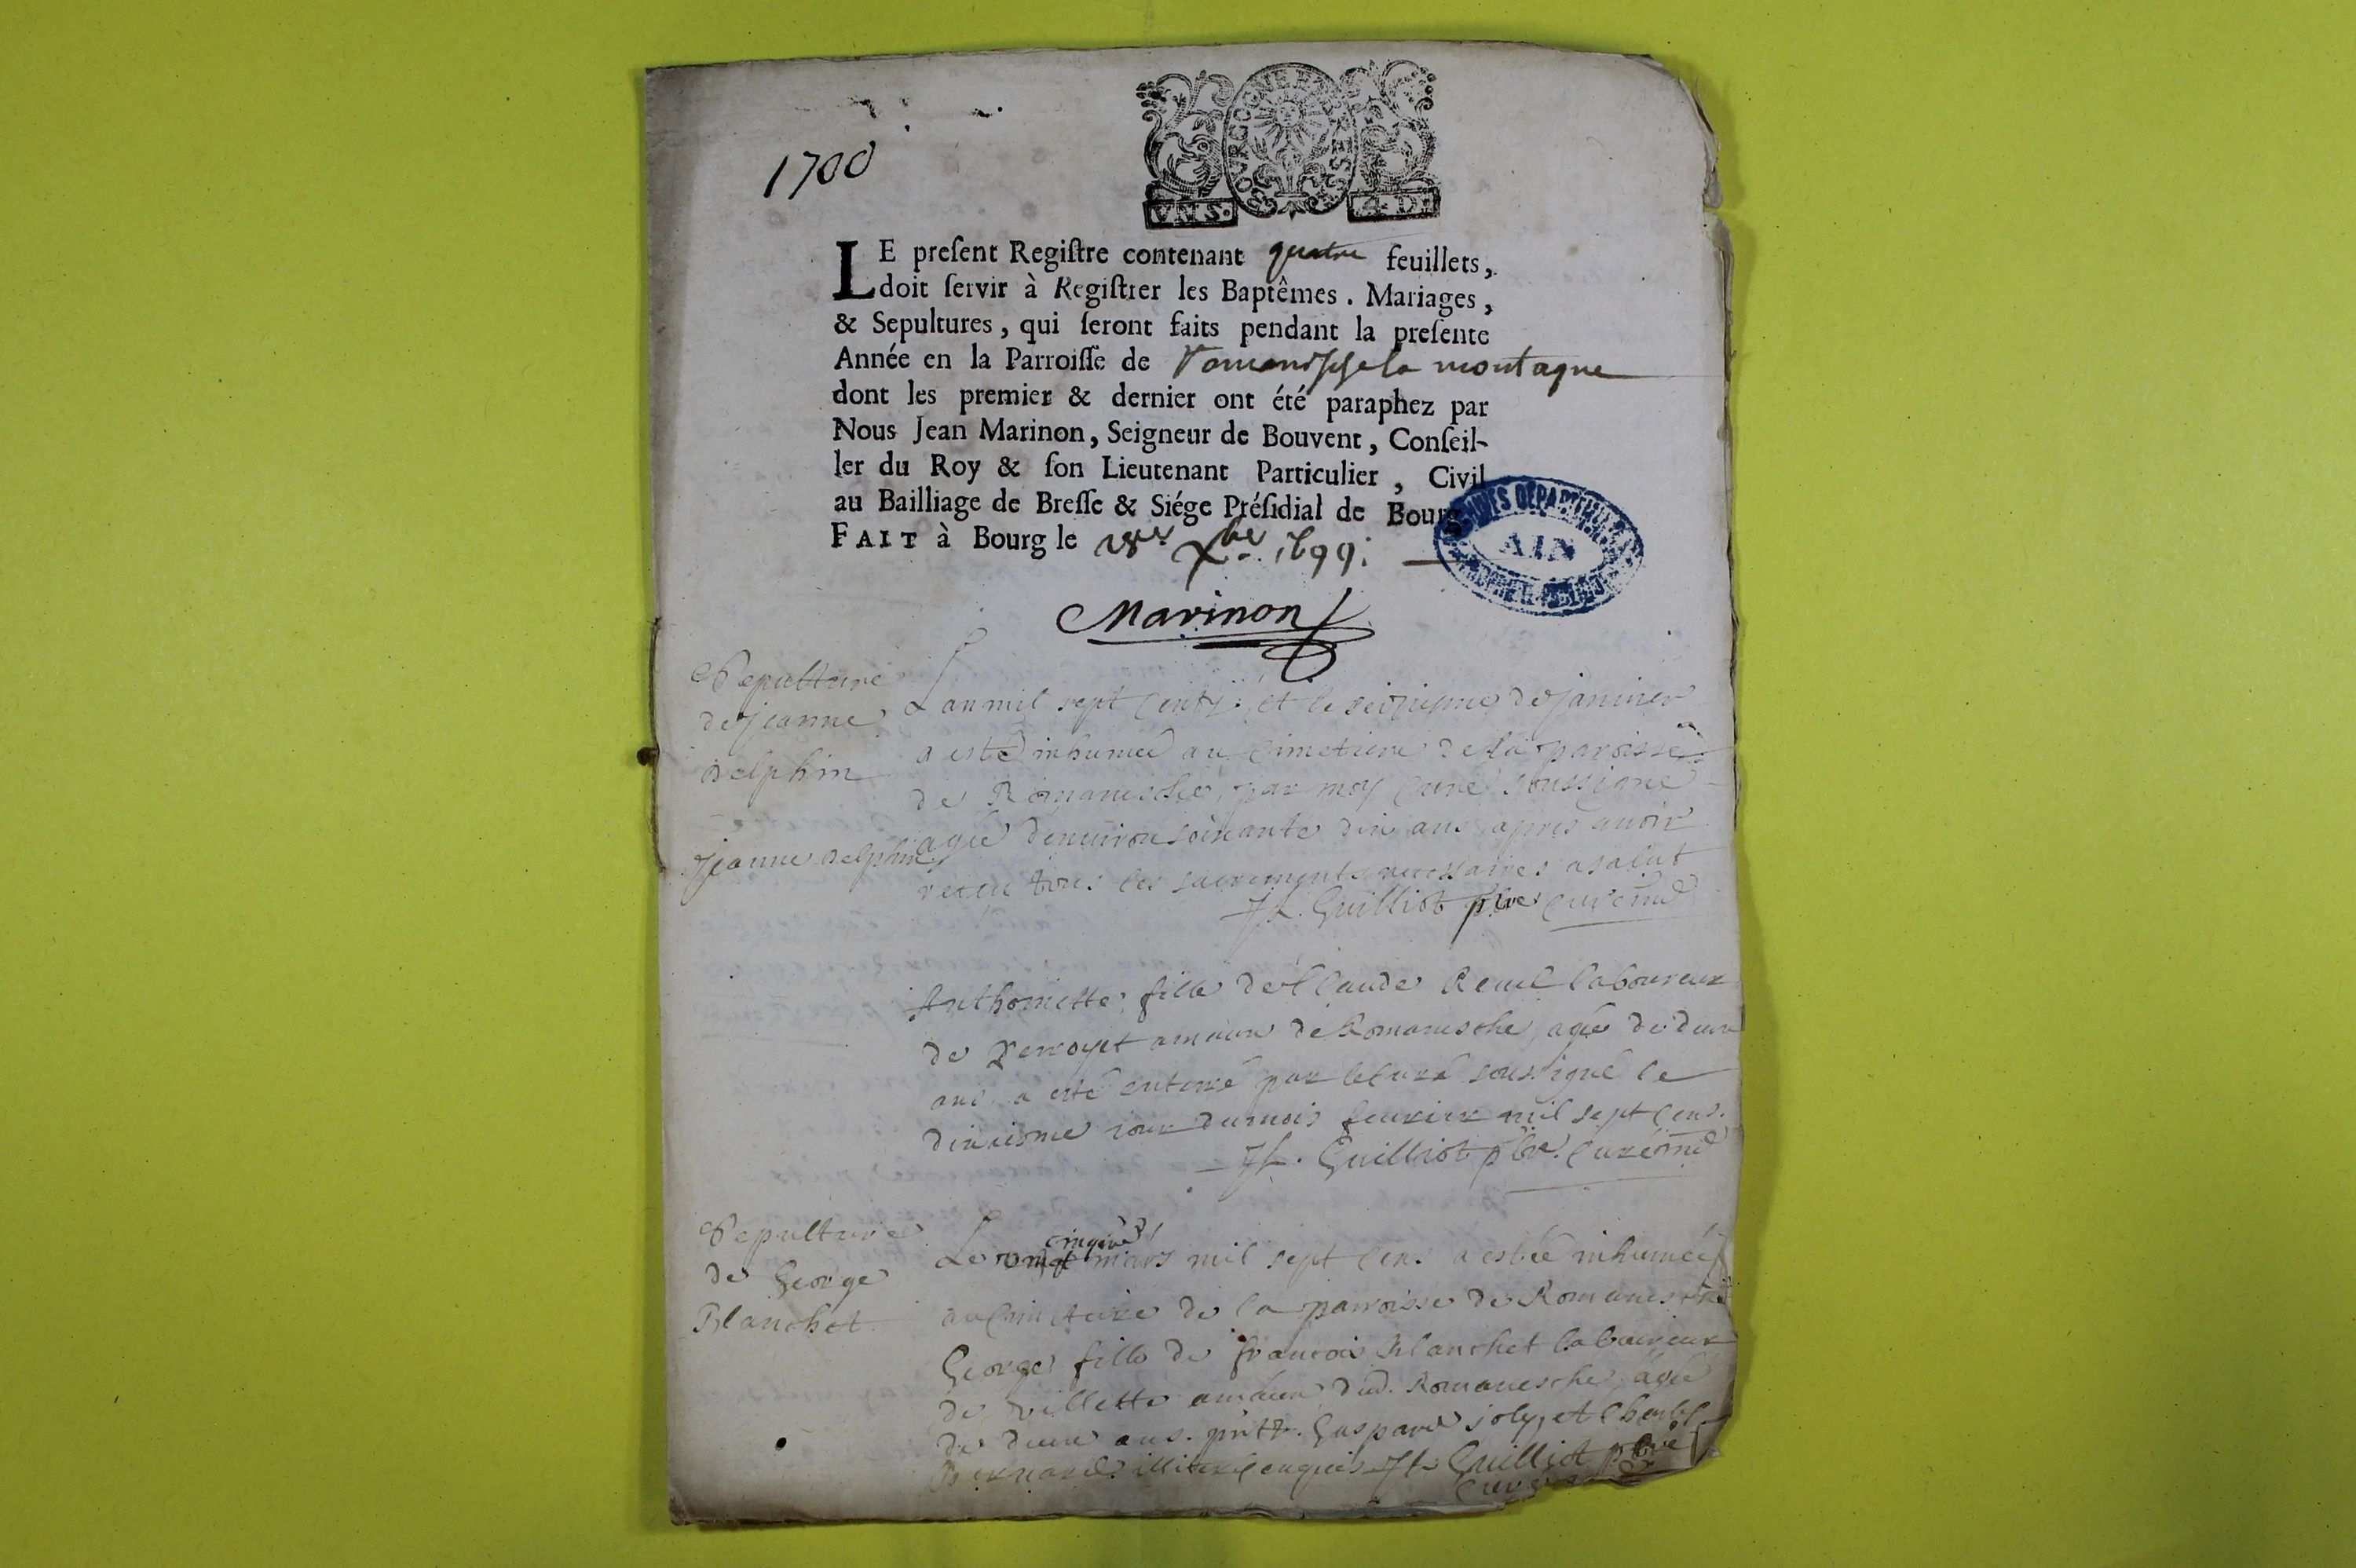 1700
BOURGOGNE
VN S. 4. D.
LE preſent Regiſtre contenant quatre feuillets,
doit ſervir à Regiſtrer les Baptêmes. Mariages,
& Sepultures, qui ſeront faits pendant la preſente
Année en la Parroiſſe de la montagne
dont les premier & dernier ont été paraphez par
Nous Jean Marinon, Seigneur de Bouvent, Conſeil-
ler du Roy & ſon Lieutenant Particulier, Civil
au Bailliage de Breſſe & Siége Préſidial de Bourg
FAIT à Bourg le xbre 1699.
ARCHIVES DEPARTEMENTALES
AIN
Marinon
Sepulture
de jeanne
delphin
L'an mil sept cents et le seizieme de janvier
a esté inhumée au cimetiere de la paroisse
de Romanesche, par moy curé soussigné
jeanne delphin
agée d'environ soixante dix ans apres avoir
receu tous les sacrements necessaires a salut
Guilliot pbre curé
Anthoinette fille de Claude Reuil laboureur
de hameau de Romanesche agée de deux
ans a esté enterré par le curé soussigné le
dixiesme jour du mois feurier mil sept cens.
Guilliot pbre. curé
Sepulture
de George
Blanchet
cinquie
Le vingt mars mil sept cens a estée inhumée
au cimetiere de la parroisse de Romanesche
George fille de francois Blanchet laboureur
de villette hameau dud. Romanesche, agée
de deux ans. Gaspard joly, et
Bernard illiteré enquis Guilliot pbre
curé